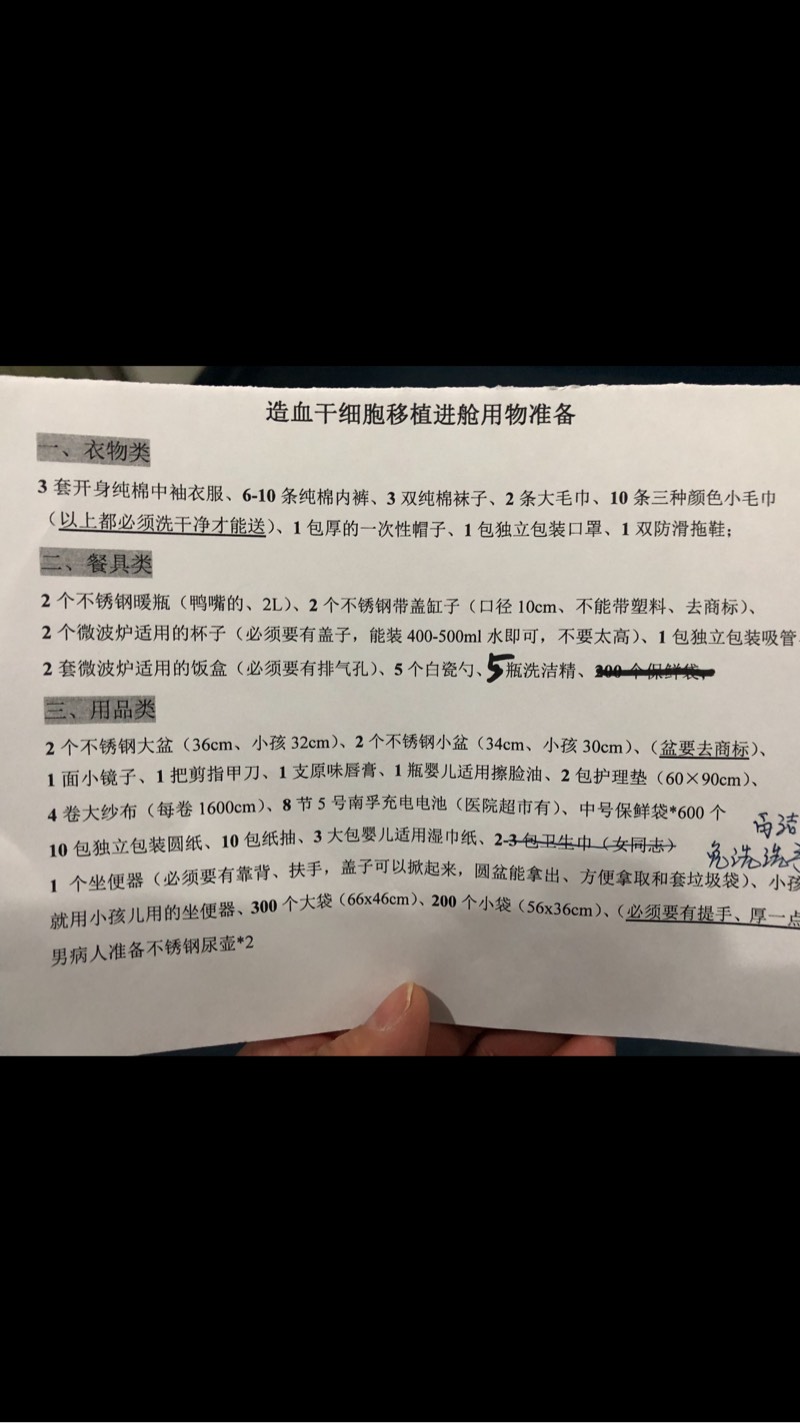 造血干细胞移植进舱用物准备
一、衣物类
3 套开身纯棉中袖衣服、6-10 条纯棉内裤、3 双纯棉袜子、2 条大毛巾、10 条三种颜色小毛巾
（以上都必须洗干净才能送）、1 包厚的一次性帽子、1 包独立包装口罩、1 双防滑拖鞋；
二、餐具类
2 个不锈钢暖瓶（鸭嘴的、2L）、2 个不锈钢带盖缸子（口径 10cm、不能带塑料、去商标）、
2 个微波炉适用的杯子（必须要有盖子，能装 400-500ml 水即可，不要太高）、1 包独立包装吸管
2 套微波炉适用的饭盒（必须要有排气孔）、5 个白瓷勺、5瓶洗洁精、200 个保鲜袋、
三、用品类
2 个不锈钢大盆（36cm、小孩 32cm）、2 个不锈钢小盆（34cm、小孩 30cm）、（盆要去商标）、
1 面小镜子、1 把剪指甲刀、1 支原味唇膏、1 瓶婴儿适用擦脸油、2 包护理垫（60×90cm）、
4 卷大纱布（每卷 1600cm）、8 节 5 号南孚充电电池（医院超市有）、中号保鲜袋*600 个
洁
10 包独立包装圆纸、10 包纸抽、3 大包婴儿适用湿巾纸、2-3 包卫生巾（女同志）
免洗洗
1 个坐便器（必须要有靠背、扶手，盖子可以掀起来，圆盆能拿出、方便拿取和套垃圾袋）、小孩
就用小孩儿用的坐便器、300 个大袋（66x46cm）、200 个小袋（56x36cm）、（必须要有提手、厚一点
男病人准备不锈钢尿壶*2